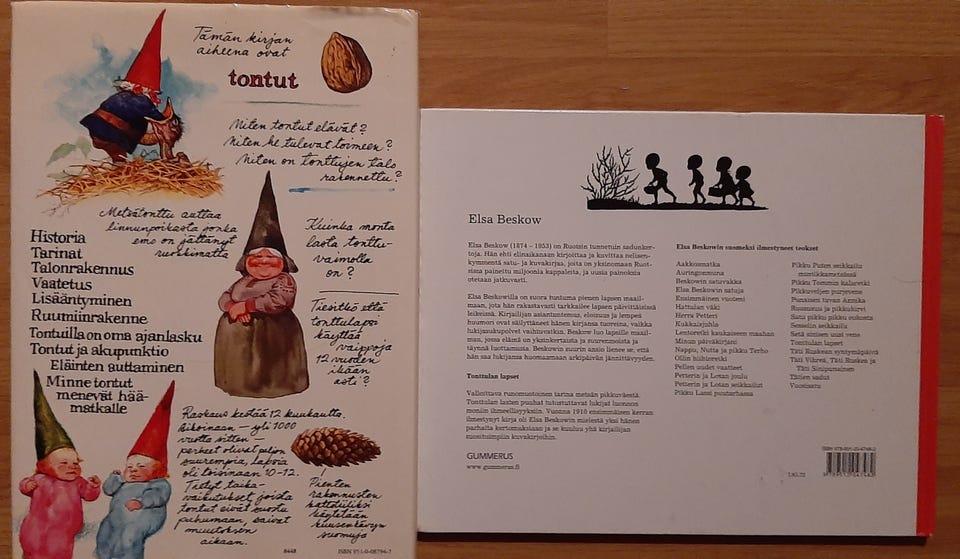 Tämän kirjan
aiheena ovat
tontut
Miten tontut elävät?
Miten he tulevat toimeen?
Miten on tonttujen talo
rakennettu?
Metsätonttu auttaa
linnunpoikasta jonka
emo on jättänyt
ruokkimatta
Historia
Tarinat
Talonrakennus
Vaatetus
Lisääntyminen
Ruumiinrakenne
Tontuilla on oma ajanlasku
Tontut ja akupunktio
Eläinten auttaminen
Minne tontut
menevät hää-
matkalle
Kuinka monta
lasta tonttu-
vaimolla
on?
Tiesitkö että
tonttulapsi
käyttää
vaippoja
12 vuoden
ikään
asti?
Raskaus kestää 12 kuukautta.
Aikoinaan - yli 1000
vuotta sitten -
perheet olivat paljon
suurempia, lapsia
oli toisinaan 10-12.
Tietyt taika-
vaikutukset, joista
tontut eivät suostu
puhumaan, saivat
muutoksen
aikaan.
Pienten
rakennusten
kattotiiliksi
käytetään
kuusenkävyn
suomuja
8448
ISBN 951-0-08794-7
Elsa Beskow
Elsa Beskow (1874 – 1953) on Ruotsin tunnetuin sadunker-
toja. Hän ehti elinaikanaan kirjoittaa ja kuvittaa nelisen-
kymmentä satu- ja kuvakirjaa, joita on yksinomaan Ruot-
sissa painettu miljoonia kappaleita, ja uusia painoksia
otetaan jatkuvasti.
Elsa Beskowilla on suora tuntuma pienen lapsen maail-
maan, jota hän rakastavasti tarkkailee lapsen päivittäisissä
leikeissä. Kirjailijan asiantuntemus, eloisuus ja lempeä
huumori ovat säilyttäneet hänen kirjansa tuoreina, vaikka
lukijasukupolvet vaihtuvatkin. Beskow luo lapsille maail-
man, jossa elämä on yksinkertaista ja suurenmoista ja
täynnä luottamusta. Beskowin suurin ansio lienee se, että
hän saa lukijansa huomaamaan arkipäivän jännittävyyden.
Tonttulan lapset
Valloittava runomuotoinen tarina metsän pikkuväestä.
Tonttulan lasten puuhat tutustuttavat lukijat luonnon
moniin ihmeellisyyksiin. Vuonna 1910 ensimmäisen kerran
ilmestynyt kirja oli Elsa Beskowin mielestä yksi hänen
parhaita kertomuksiaan ja se kuuluu yhä kirjailijan
suosituimpiin kuvakirjoihin.
GUMMERUS
www.gummerus.fi
Elsa Beskowin suomeksi ilmestyneet teokset
Aakkosmatka
Auringonmuna
Beskowin satuvakka
Elsa Beskowin satuja
Ensimmäinen vuoteni
Hattulan väki
Herra Petteri
Kukkaisjuhla
Lentoretki kaukaiseen maahan
Minun päiväkirjani
Nappu, Nutta ja pikku Terho
Ollin hiihtoretki
Pellen uudet vaatteet
Petterin ja Lotan joulu
Petterin ja Lotan seikkailut
Pikku Lassi puutarhassa
Pikku Puten seikkailu
mustikkametsässä
Pikku Tommin kalaretki
Pikkuveljen purjevene
Punaisen tuvan Annika
Ruusunen ja pikkuhirvi
Satu pikku pikku eukosta
Sessalin seikkailu
Setä sinisen uusi vene
Tonttulan lapset
Täti Ruskean syntymäpäivä
Täti Vihreä, Täti Ruskea ja
Täti Sinipunainen
Tätien sadut
Vuosisatu
L85.22
ISBN 978-951-20-4748-2